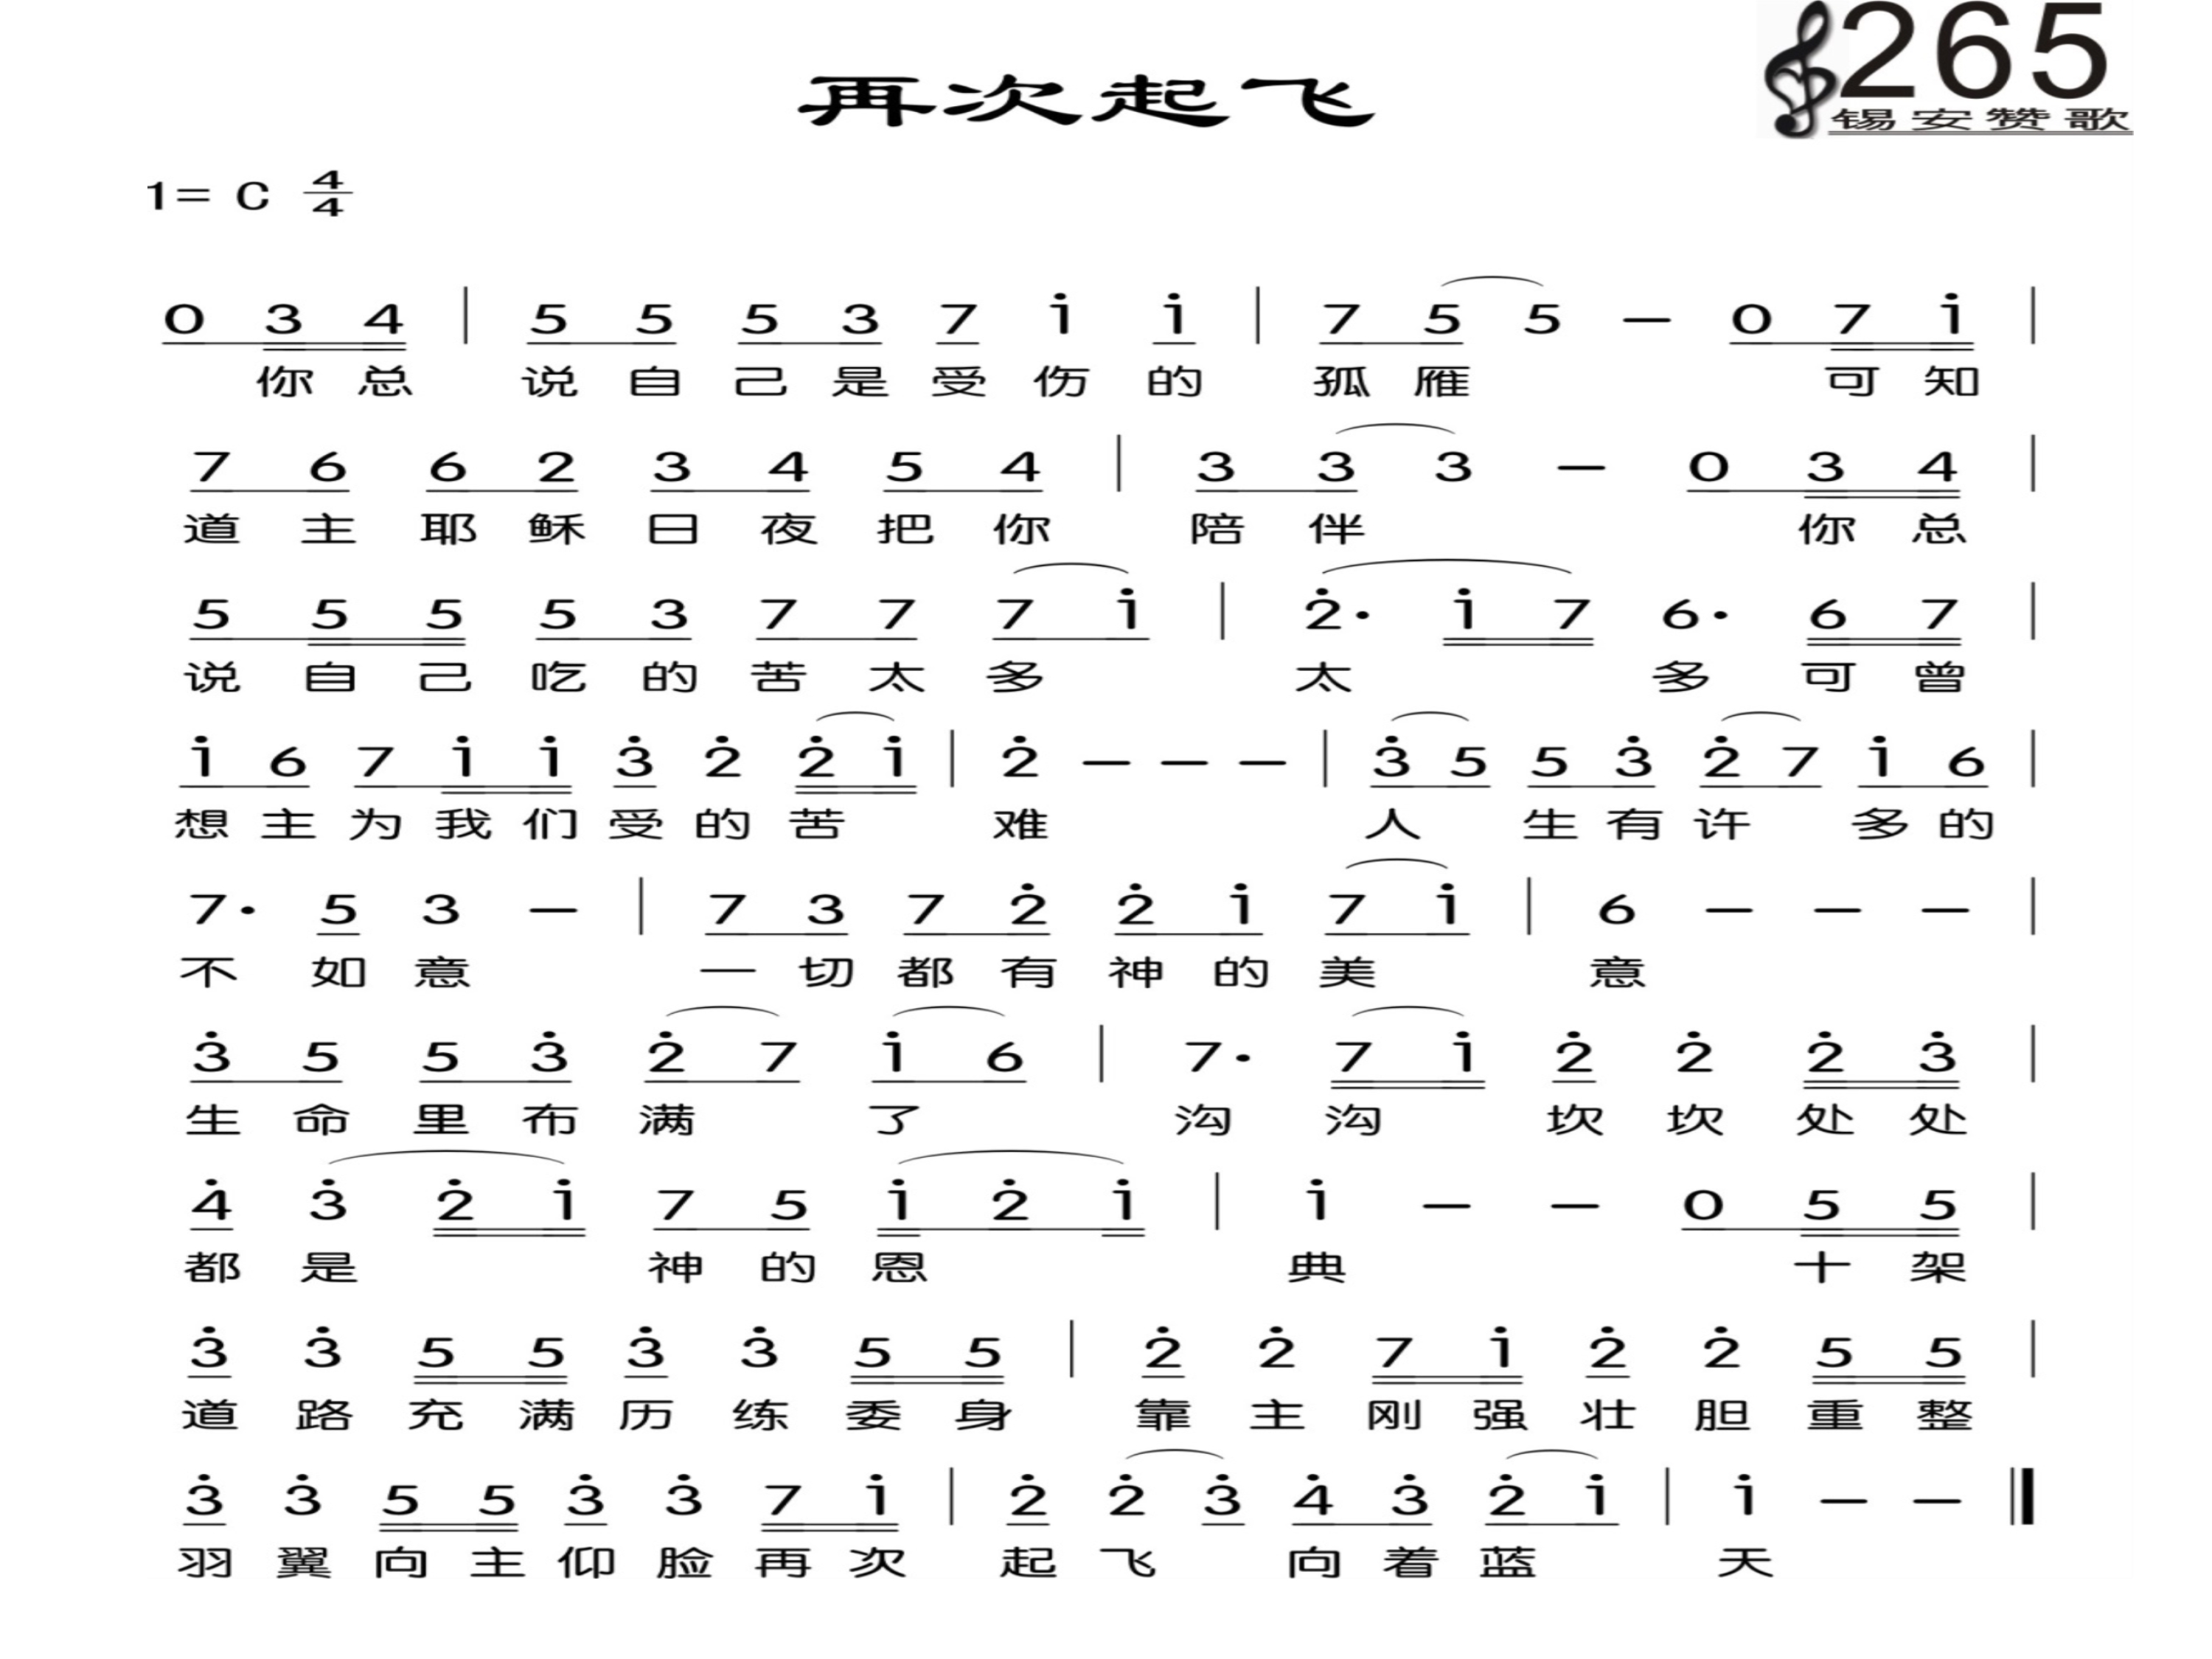 265
锡安赞歌
再次起飞
1= C 4/4
0 3 4 | 5 5 5 3 7 i i | 7 5 5 — 0 7 i |
你总 说自己是受伤的 孤雁 可知
7 6 6 2 3 4 5 4 | 3 3 3 — 0 3 4 |
道主耶稣日夜把你 陪伴 你总
5 5 5 5 3 7 7 7 i | 2· i 7 6· 6 7 |
说自己吃的苦太多 太 多可曾
i 6 7 i i 3 2 2 i | 2 — — — | 3 5 5 3 2 7 i 6 |
想主为我们受的苦 难 人 生有许 多的
7· 5 3 — | 7 3 7 2 2 i 7 i | 6 — — — |
不如意 一切都有神的美 意
3 5 5 3 2 7 i 6 | 7· 7 i 2 2 2 3 |
生命里布满 了 沟沟 坎坎处处
4 3 2 i 7 5 i 2 i | i — — 0 5 5 |
都是 神的恩 典 十架
3 3 5 5 3 3 5 5 | 2 2 7 i 2 2 5 5 |
道路充满历练委身 靠主刚强壮胆重整
3 3 5 5 3 3 7 i | 2 2 3 4 3 2 i | i — — ‖
羽翼向主仰脸再次 起飞 向着蓝 天